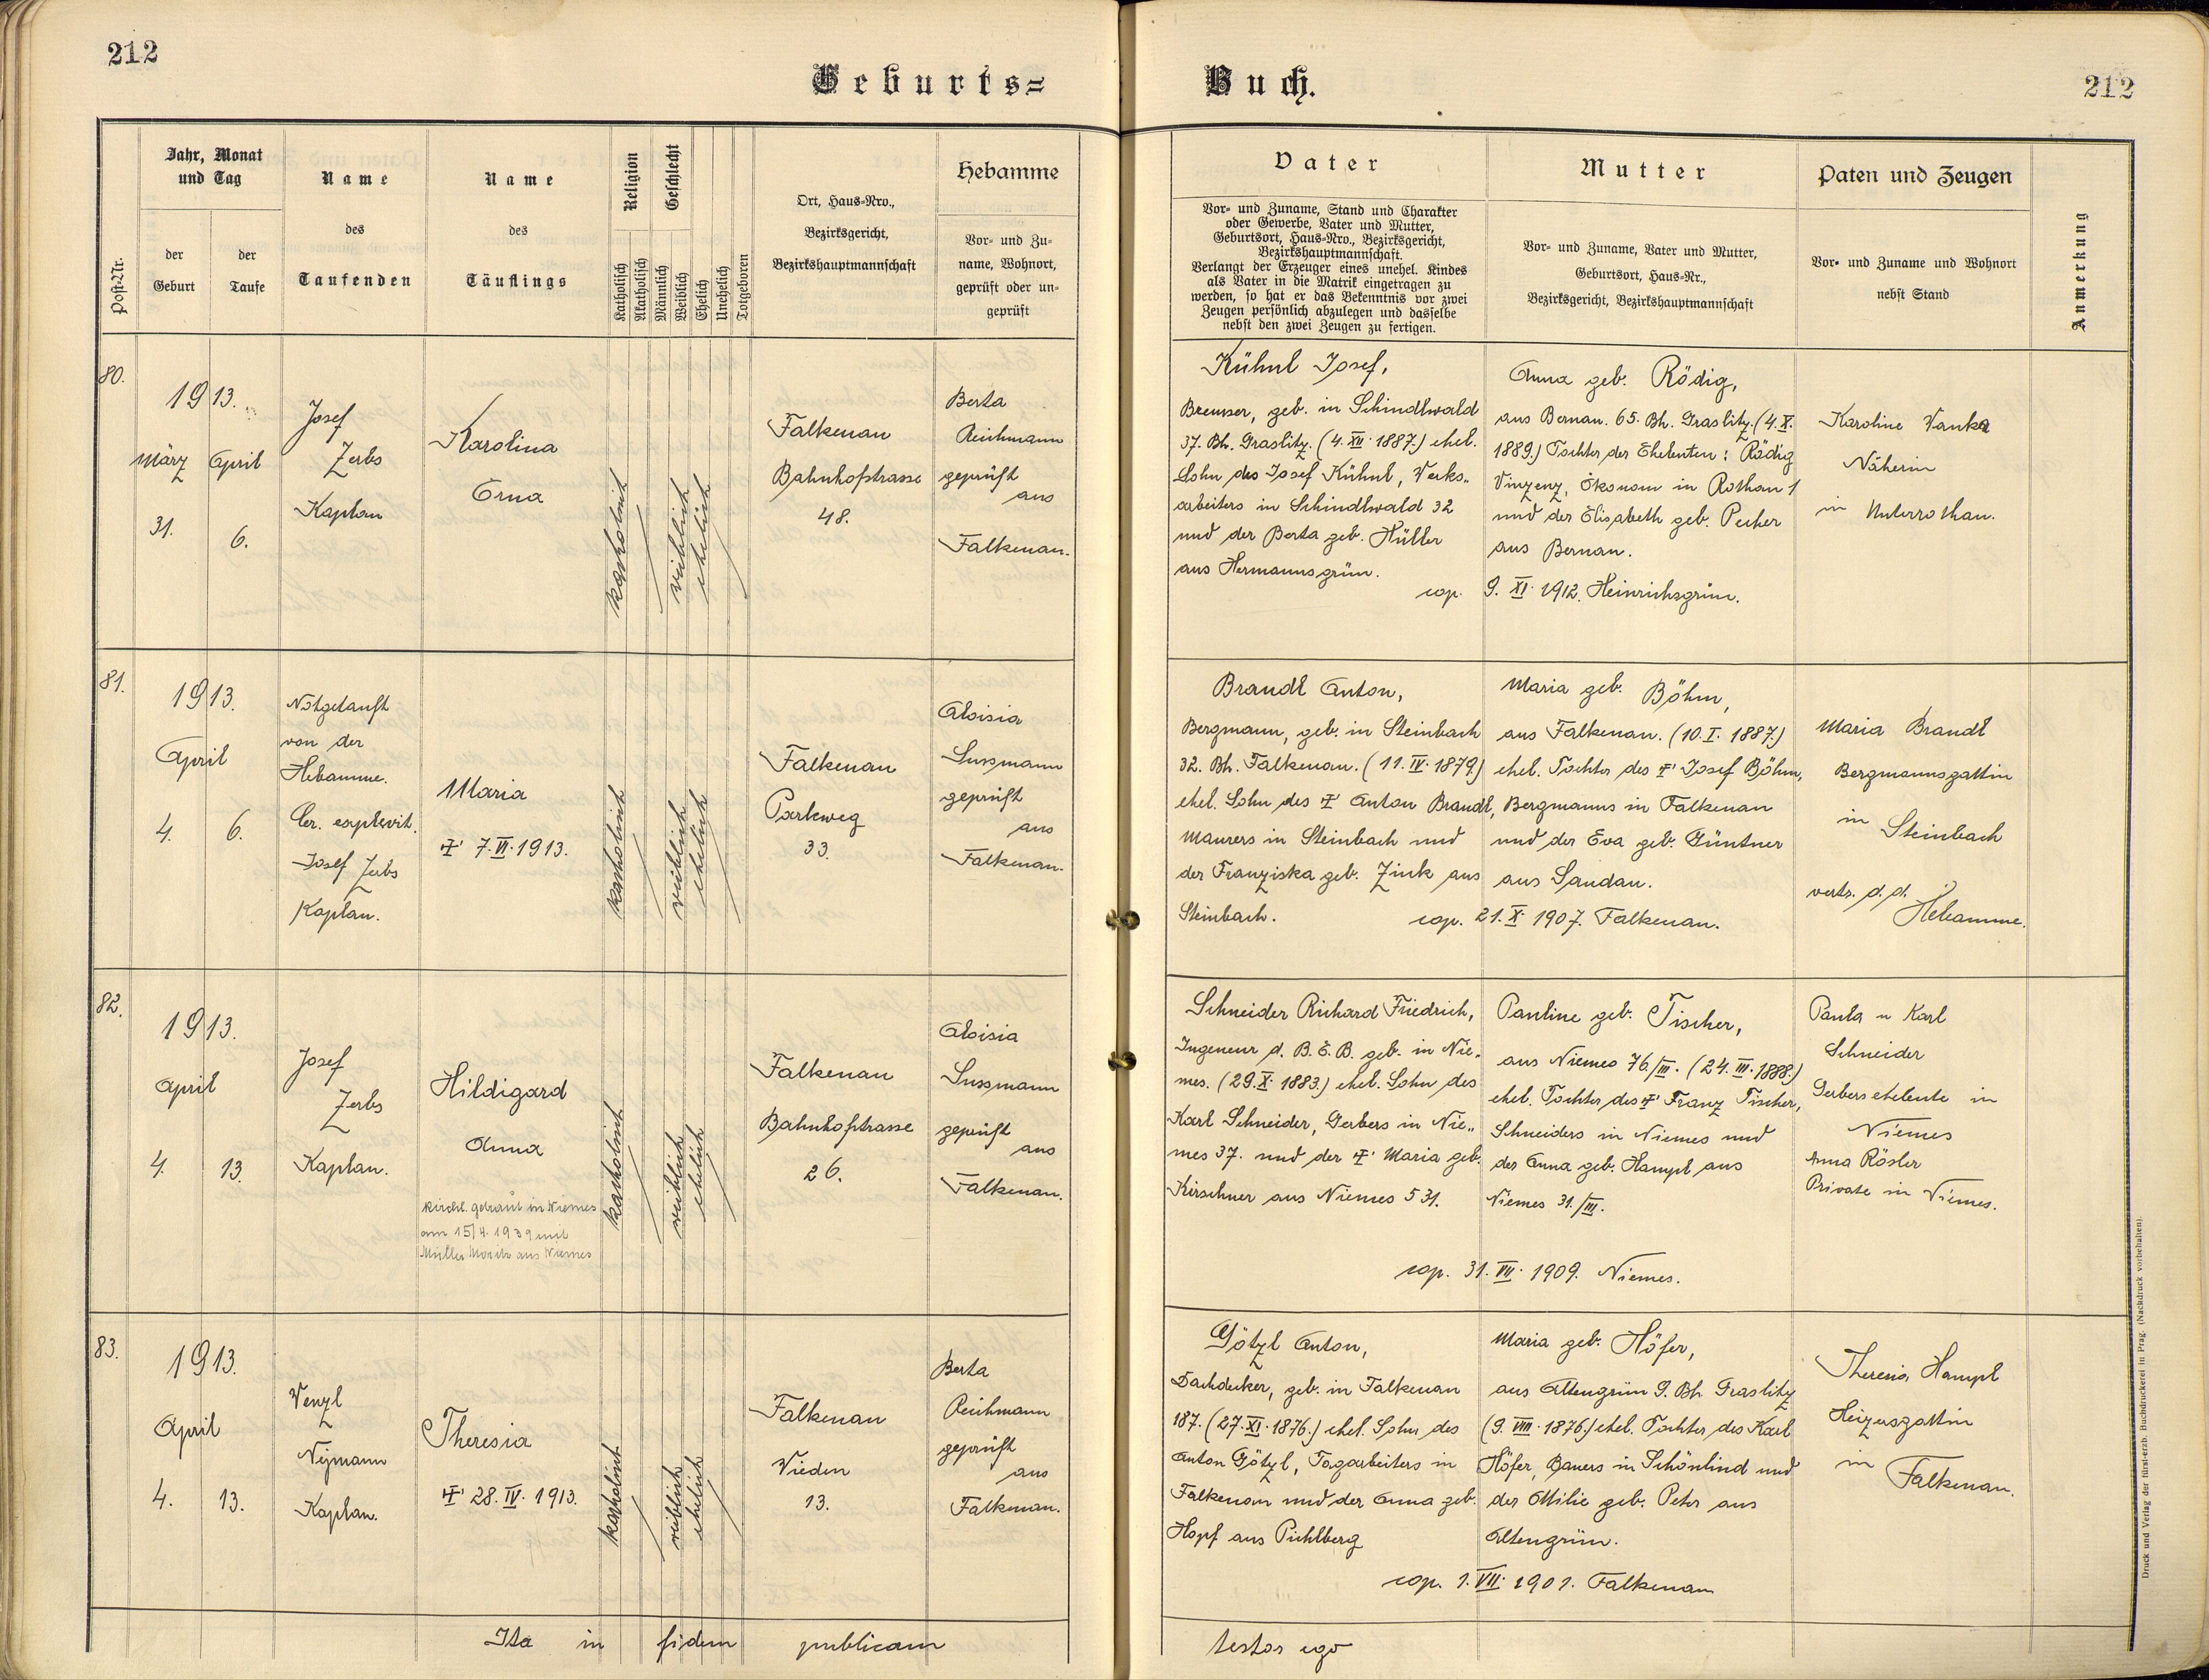 212
Geburts=
Buch.
212
Post-Nr.
Jahr, Monat
und Tag
der
Geburt
der
Taufe
Name
des
Taufenden
Name
des
Täuflings
Religion
Geschlecht
Katholisch
Akatholisch
Männlich
Weiblich
Ehelich
Unehelich
Totgeboren
Ort, Haus-Nro.,
Bezirksgericht,
Bezirkshauptmannschaft
Hebamme
Vor- und Zu-
name, Wohnort,
geprüft oder un-
geprüft
Vater
Vor- und Zuname, Stand und Charakter
oder Gewerbe, Vater und Mutter,
Geburtsort, Haus-Nro., Bezirksgericht,
Bezirkshauptmannschaft.
Verlangt der Erzeuger eines unehel. Kindes
als Vater in die Matrik eingetragen zu
werden, so hat er das Bekenntnis vor zwei
Zeugen persönlich abzulegen und dasselbe
nebst den zwei Zeugen zu fertigen.
Mutter
Vor- und Zuname, Vater und Mutter,
Geburtsort, Haus-Nr.,
Bezirksgericht, Bezirkshauptmannschaft
Paten und Zeugen
Vor- und Zuname und Wohnort
nebst Stand
Anmerkung
80.
1913.
März
31.
April
6.
Josef
Zerbs
Kaplan
Karolina
Erna
katholisch
weiblich
ehelich
Falkenau
Bahnhofstrasse
48.
Berta
Reichmann
geprüft
aus
Falkenau.
Kühnl Josef,
Bremser, geb. in Schindlwald
37. Bh. Graslitz. (4. XII. 1887.) ehel.
Sohn des Josef Kühnl, Werks-
arbeiters in Schindlwald 32
und der Berta geb. Hüller
aus Hermannsgrün.
Anna geb. Rödig,
aus Bernau. 65. Bh. Graslitz. (4. X.
1889.) Tochter der Eheleuten: Rödig
Vinzenz, Ökonom in Rothau 1
und der Elisabeth geb. Pecher
aus Bernau.
cop. 9. XI. 1912. Heinrichsgrün.
Karoline Wanka
Näherin
in Unterrothau.
81.
1913.
April
4. 6.
Notgetauft
von der
Hebamme.
Cer. explevit.
Josef Zerbs
Kaplan.
Maria
✝ 7. VI. 1913.
katholisch
weiblich
ehelich
Falkenau
Parkweg
33.
Aloisia
Sussmann
geprüft
aus
Falkenau.
Brandl Anton,
Bergmann, geb. in Steinbach
32. Bh. Falkenau. (11. IV. 1879.)
ehel. Sohn des ✝ Anton Brandl,
Maurers in Steinbach und
der Franziska geb. Zink aus
Steinbach.
Maria geb. Böhm,
aus Falkenau. (10. I. 1887.)
ehel. Tochter des ✝ Josef Böhm,
Bergmanns in Falkenau
und der Eva geb. Güntner
aus Sandau.
cop. 21. X. 1907. Falkenau.
Maria Brandl
Bergmannsgattin
in Steinbach
vertr. d. d.
Hebamme.
82.
1913.
April
4. 13.
Josef
Zerbs
Kaplan.
Hildigard
Anna
kirchl. getraut in Niemes
am 15/4. 1939 mit
Müller Moritz aus Niemes
katholisch
weiblich
ehelich
Falkenau
Bahnhofstrasse
26.
Aloisia
Sussmann
geprüft
aus
Falkenau.
Schneider Richard Friedrich,
Ingeneur d. B. E. B. geb. in Nie-
mes. (29. X. 1883.) ehel. Sohn des
Karl Schneider, Gerbers in Nie-
mes 37. und der ✝ Maria geb.
Kirschner aus Niemes 531.
Pauline geb. Tischer,
aus Niemes 76./III. (24. III. 1888.)
ehel. Tochter des ✝ Franz Tischer,
Schneiders in Niemes und
der Anna geb. Hampl aus
Niemes 31./III.
cop. 31. VII. 1909. Niemes.
Paula u Karl
Schneider
Gerberseheleute in
Niemes
Anna Rösler
Private in Niemes.
83.
1913.
April
4. 13.
Wenzl
Nejmann
Kaplan.
Theresia
✝ 28. IV. 1913.
katholisch
weiblich
ehelich
Falkenau
Wieden
13.
Berta
Reichmann
geprüft
aus
Falkenau.
Götzl Anton,
Dachdecker, geb. in Falkenau
187. (27. XI. 1876.) ehel. Sohn des
Anton Götzl, Tagarbeiters in
Falkenau und der Anna geb.
Hopf aus Pichlberg
Maria geb. Höfer,
aus Altengrün 9. Bh. Graslitz
(9. VIII. 1876.) ehel. Tochter des Karl
Höfer, Bauers in Schönlind und
der Ottilie geb. Peter aus
Altengrün.
cop. 1. VII. 1901. Falkenau
Theresia Hampl
Heizersgattin
in Falkenau.
Ita in fidem publicam
testor ego
Druck und Verlag der fürst-erzb. Buchdruckerei in Prag. (Nachdruck vorbehalten).